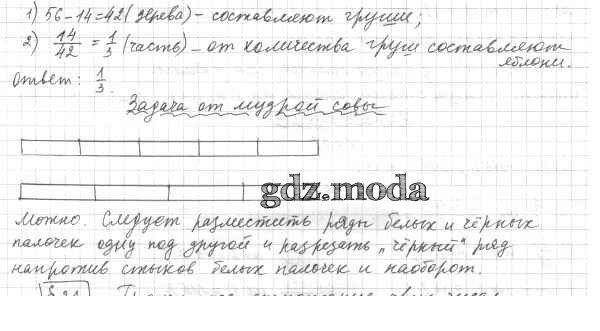 1) 56-14=42 (дерева) - составляют груши;
2) 14/42 = 1/3 (часть) - от количества груш составляют
яблони.
ответ: 1/3.
Задача от мудрой совы
gdz.moda
Можно. Следует разместить ряды белых и чёрных
палочек одну под другой и разрезать "чёрный" ряд
напротив стыков белых палочек и наоборот.